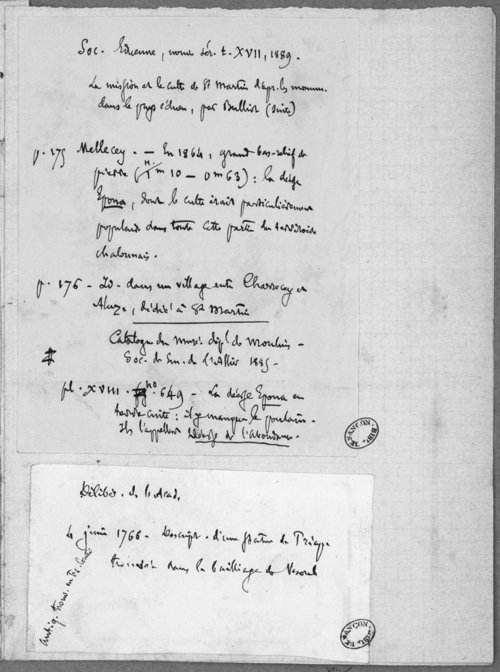 Soc. Eduenne, nouv. sér. t. XVII, 1889.
La mission et le culte de St Martin d'apr. les monum.
dans le pays éduen, par Bulliot (suite)
p. 175 Mellecey. — En 1864, grand bas-relief de
pierre (H. 1m 10 — 0m 63) : la déesse
Epona, dont le culte était particulièrement
populaire dans toute cette partie du territoire
chalonnais.
p. 176 — Id. dans un village entre Charrecey et
Aluze, dédié à St Martin
Catalogue du musée dépl de Moulins —
Soc. d'Em. de l'Allier 1885 —
pl. XVIII. no. 649 — La déesse Epona en
terre cuite : il y manque le poulain.
Ils l'appellent Déesse de l'abondance.
BESANÇON BIBL.
Délibér. de l'Acad.
4 juin 1766 — Descript. d'une statue de Priape
trouvée dans le bailliage de Vesoul
Antiq. trouv. en Fr. Comté
BESANÇON BIBL.